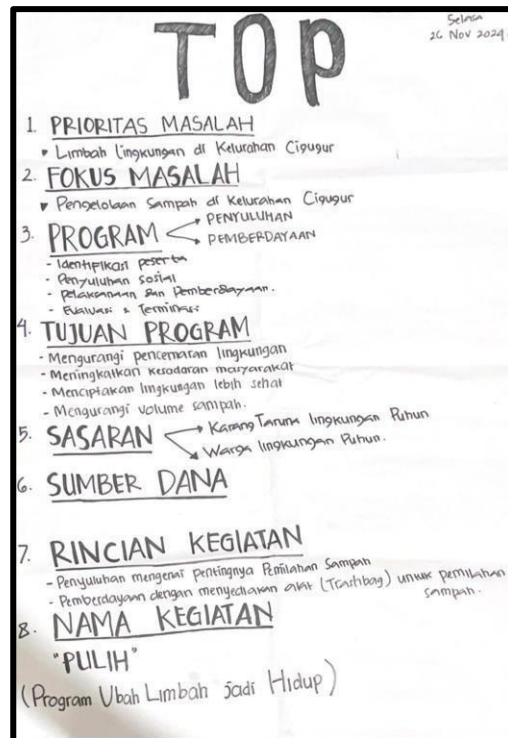 TOP
Selasa
26 Nov 2024
1. PRIORITAS MASALAH
▾ Limbah Lingkungan di Kelurahan Cigugur
2. FOKUS MASALAH
▾ Pengelolaan Sampah di Kelurahan Cigugur
3. PROGRAM → PENYULUHAN
→ PEMBERDAYAAN
- Identifikasi peserta
- Penyuluhan sosial
- Pelaksanaan dan Pemberdayaan.
- Evaluasi & Terminasi
4. TUJUAN PROGRAM
- Mengurangi pencemaran lingkungan
- Meningkatkan kesadaran masyarakat
- Menciptakan lingkungan lebih sehat
- Mengurangi volume sampah.
5. SASARAN → Karang Taruna lingkungan Puhun
→ Warga lingkungan Puhun.
6. SUMBER DANA
7. RINCIAN KEGIATAN
- Penyuluhan mengenai pentingnya Pemilahan Sampah
- Pemberdayaan dengan menyediakan alat (Trashbag) untuk pemilahan
sampah.
8. NAMA KEGIATAN
"PULIH"
(Program Ubah Limbah jadi Hidup)